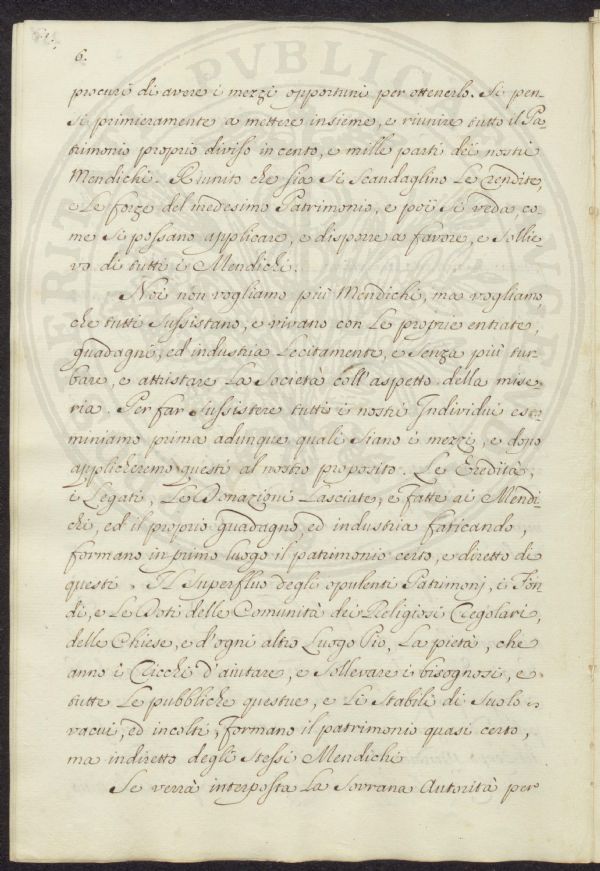 6.
procuri di avere i mezzi opportuni per ottenerlo. Si pen-
si primieramente a mettere insieme, e riunire tutto il Pa-
trimonio proprio diviso in cento, e mille parti dei nostri
Mendichi. Riunito che sia si scandaglino le rendite,
e le forze del medesimo Patrimonio, e poi si veda co-
me si possano applicare, e disporre a favore, e sollie-
vo di tutti i Mendichi.
Noi non vogliamo più Mendichi, ma vogliamo,
che tutti sussistano, e vivano con le proprie entrate,
guadagni, ed industria lecitamente, e senza più tur-
bare, e attristare la Società coll'aspetto della mise-
ria. Per far sussistere tutti i nostri Individui esa-
miniamo prima adunque quali siano i mezzi, e dopo
applicheremo questi al nostro proposito. Le Eredità,
i Legati, le Donazioni lasciate, e fatte ai Mendi-
chi, ed il proprio guadagno, ed industria faticando,
formano in primo luogo il patrimonio certo, e diretto di
questi. Il superfluo degli opulenti Patrimonj, i Fon-
di, e le Doti delle Comunità dei Religiosi Regolari,
delle Chiese, e d'ogni altro Luogo Pio, la pietà, che
anno i Ricchi d'aiutare, e sollevare i bisognosi, e
tutte le pubbliche questue, e li stabili di suolo
vacui, ed incolti, formano il patrimonio quasi certo,
ma indiretto degli stessi Mendichi
Se verrà interposta la Sovrana Autorità per